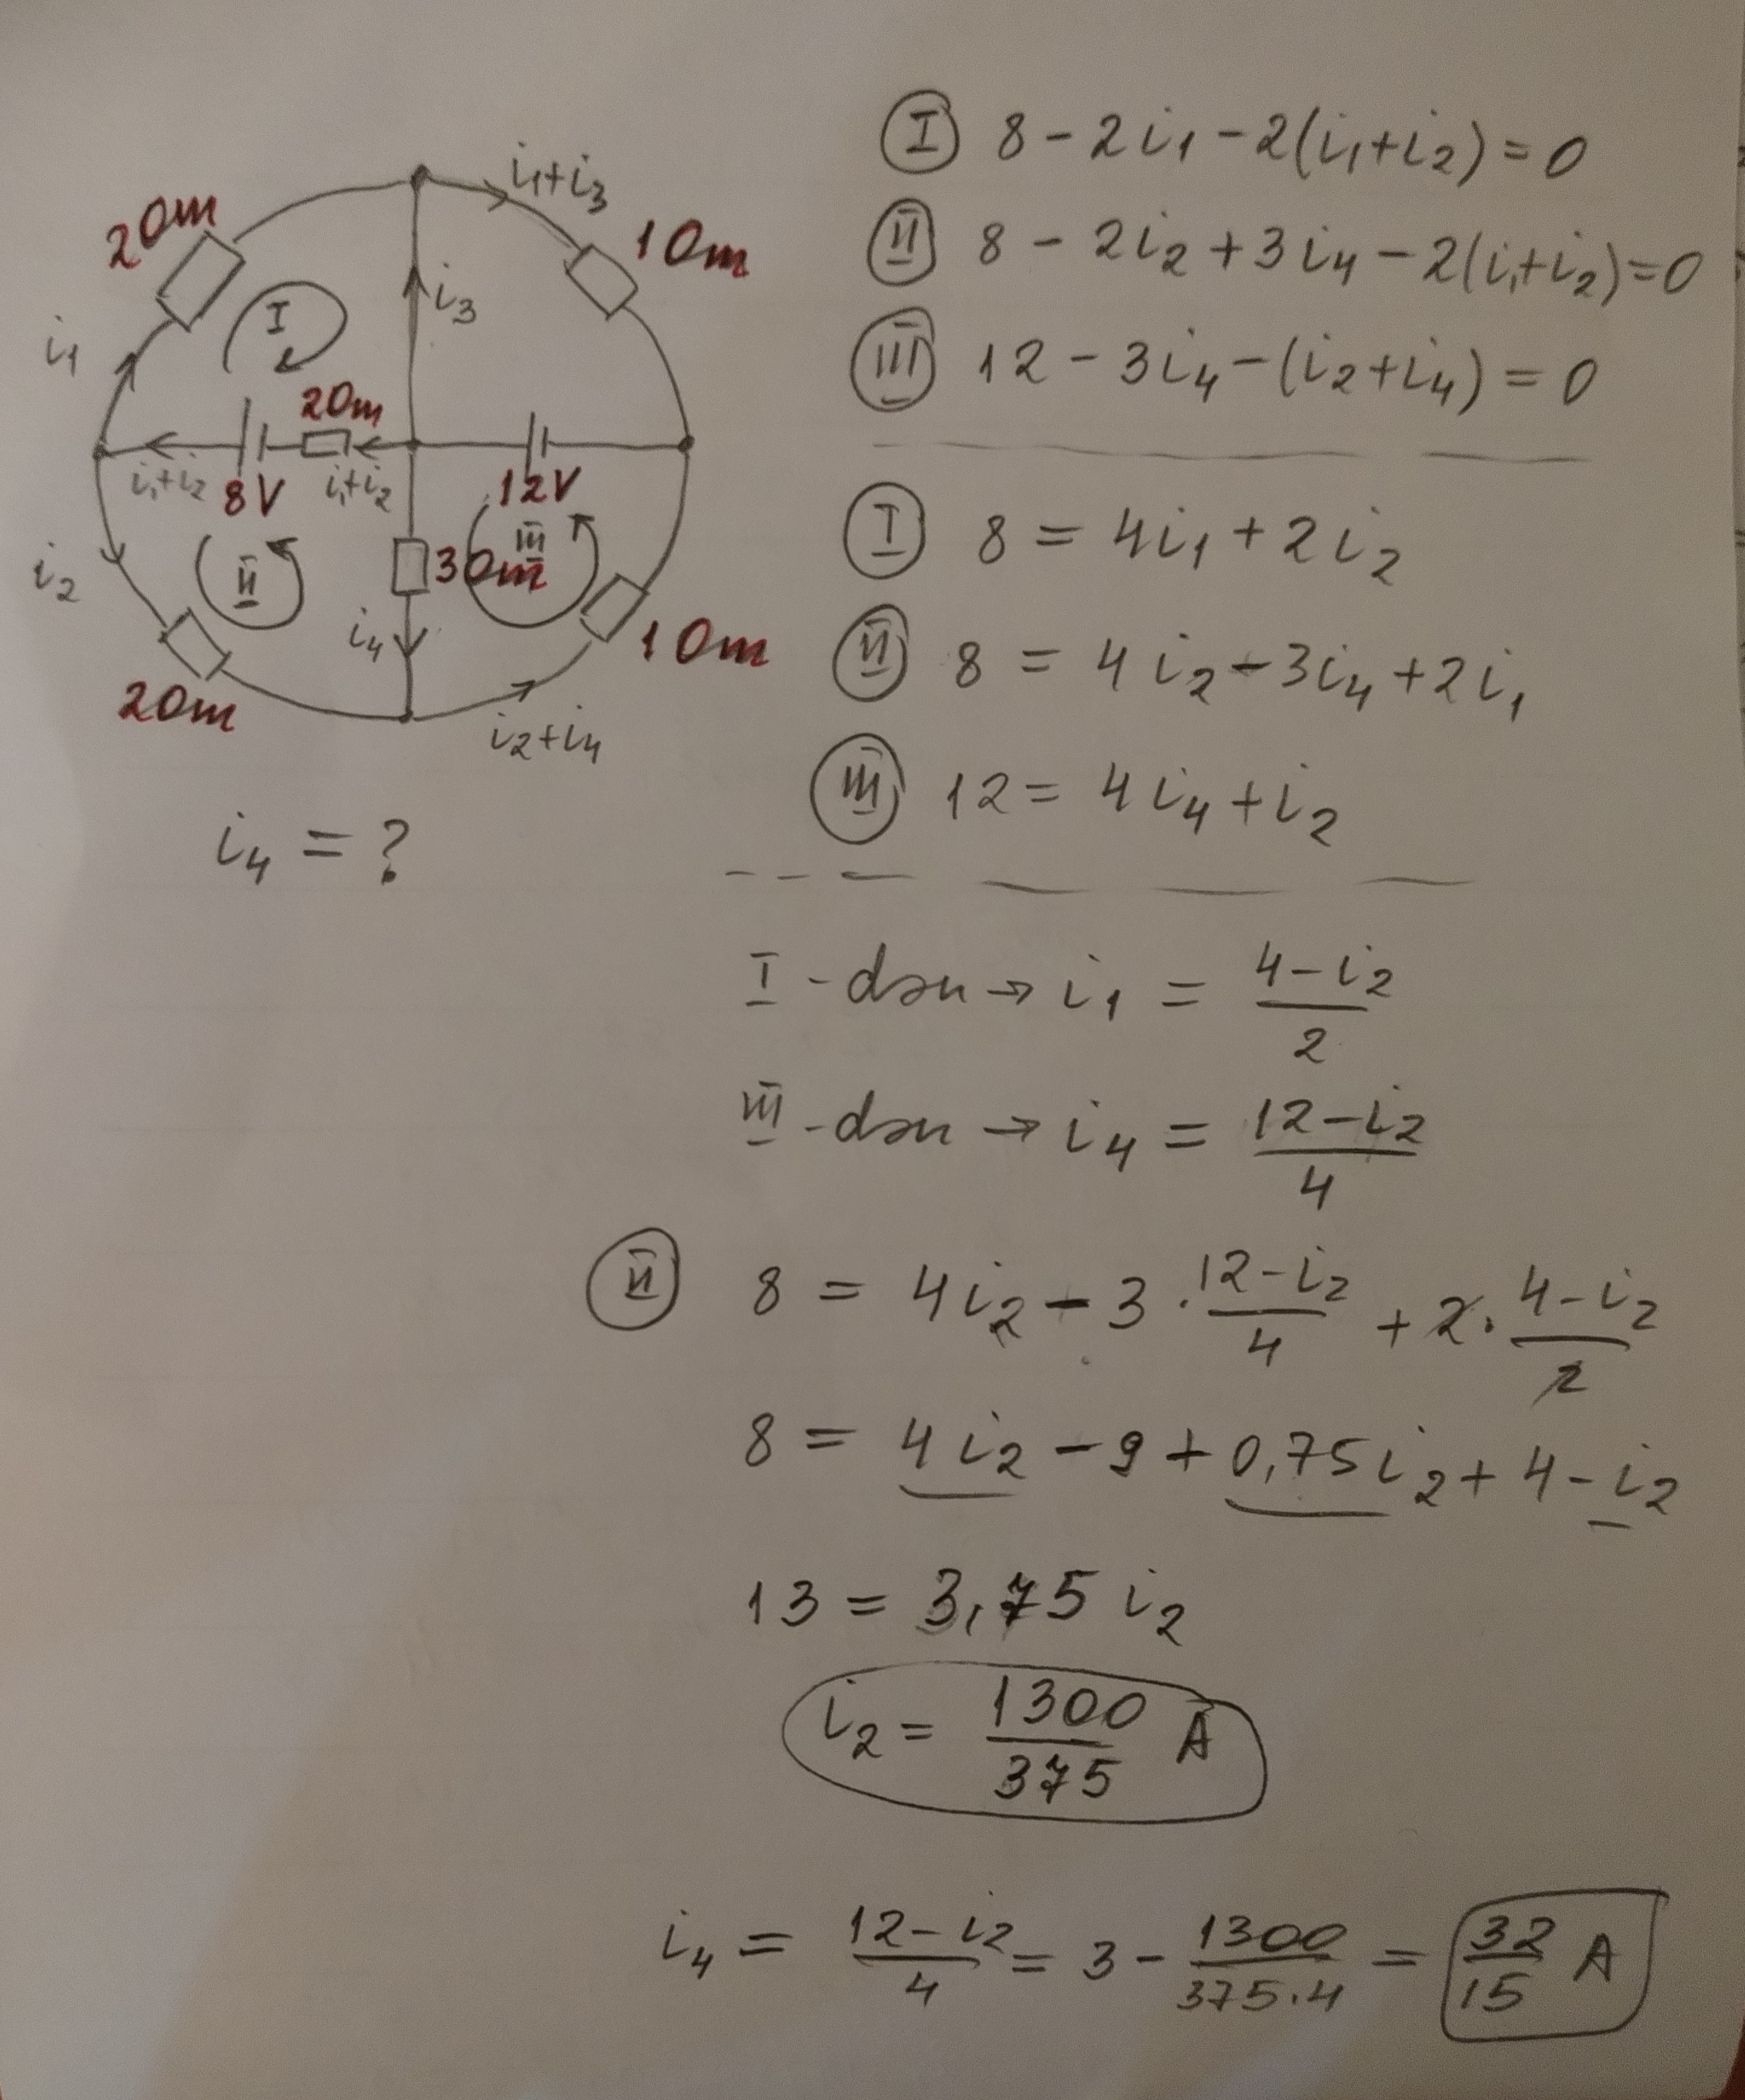 i₁+i₃
2 Om
1 Om
i₁
I
i₃
2 Om
i₁+i₂
8V
i₁+i₂
12V
i₂
II
3 Om
III
i₄
1 Om
2 Om
i₂+i₄
i₄ = ?
I 8 - 2i₁ - 2(i₁+i₂) = 0
II 8 - 2i₂ + 3i₄ - 2(i₁+i₂) = 0
III 12 - 3i₄ - (i₂+i₄) = 0
I 8 = 4i₁ + 2i₂
II 8 = 4i₂ - 3i₄ + 2i₁
III 12 = 4i₄ + i₂
I - dən → i₁ = (4-i₂)/2
III - dən → i₄ = (12-i₂)/4
II 8 = 4i₂ - 3 · (12-i₂)/4 + 2 · (4-i₂)/2
8 = 4i₂ - 9 + 0,75i₂ + 4 - i₂
13 = 3,75 i₂
i₂ = 1300/375 A
i₄ = (12-i₂)/4 = 3 - 1300/(375·4) = 32/15 A